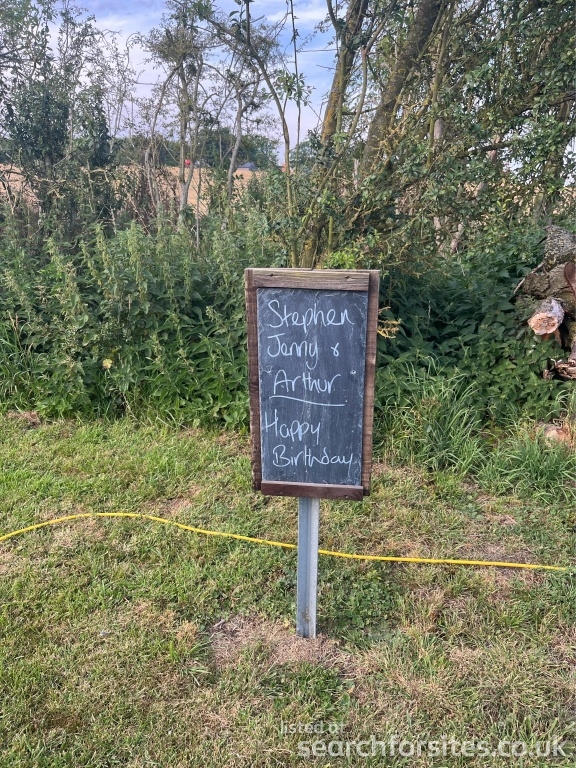 Stephen
Jenny &
Arthur
Happy
Birthday
listed at
searchforsites.co.uk